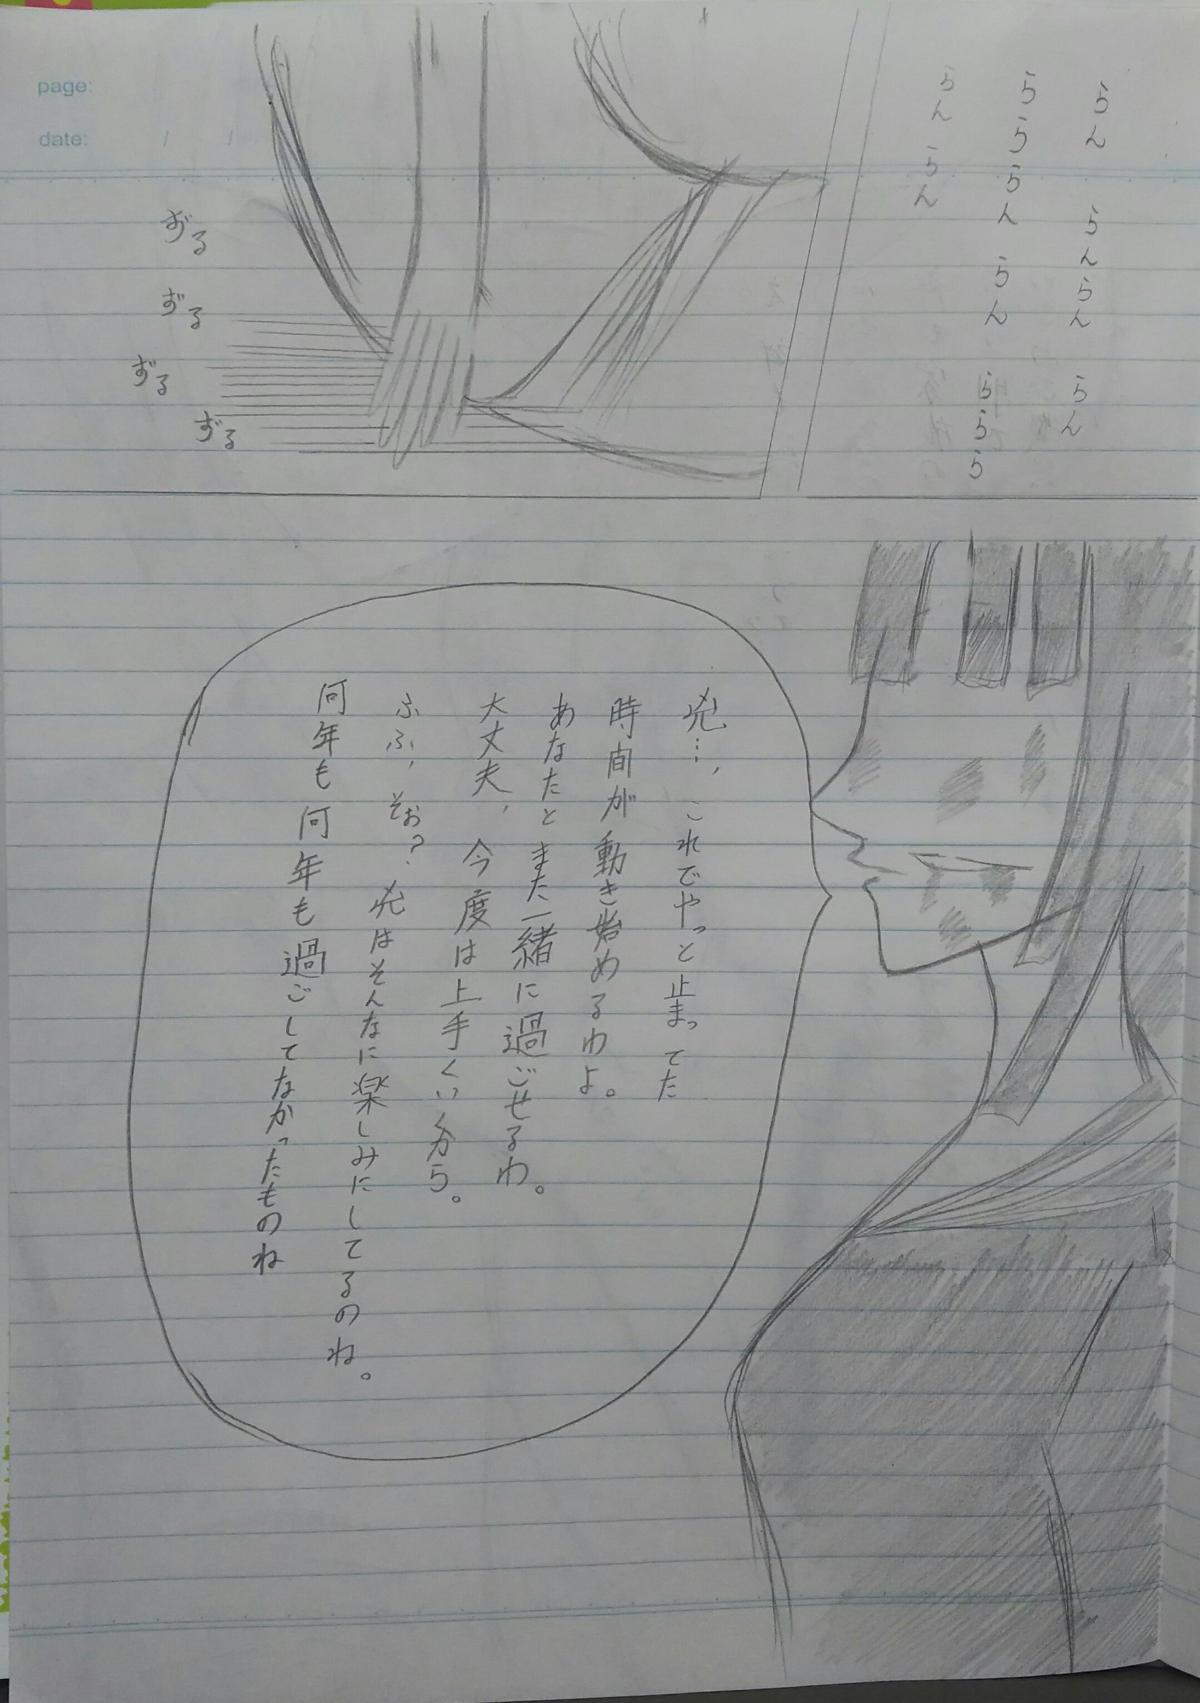 page:
date: / /
らん らんらん らん
らららん らん ららら
らん らん
ずる
ずる
ずる
ずる
兇…, これでやっと止まってた
時間が動き始めるわよ。
あなたとまた一緒に過ごせるわ。
大丈夫, 今度は上手くいくから。
ふふ, そお? 兇はそんなに楽しみにしてるのね。
何年も何年も過ごしてなかったものね